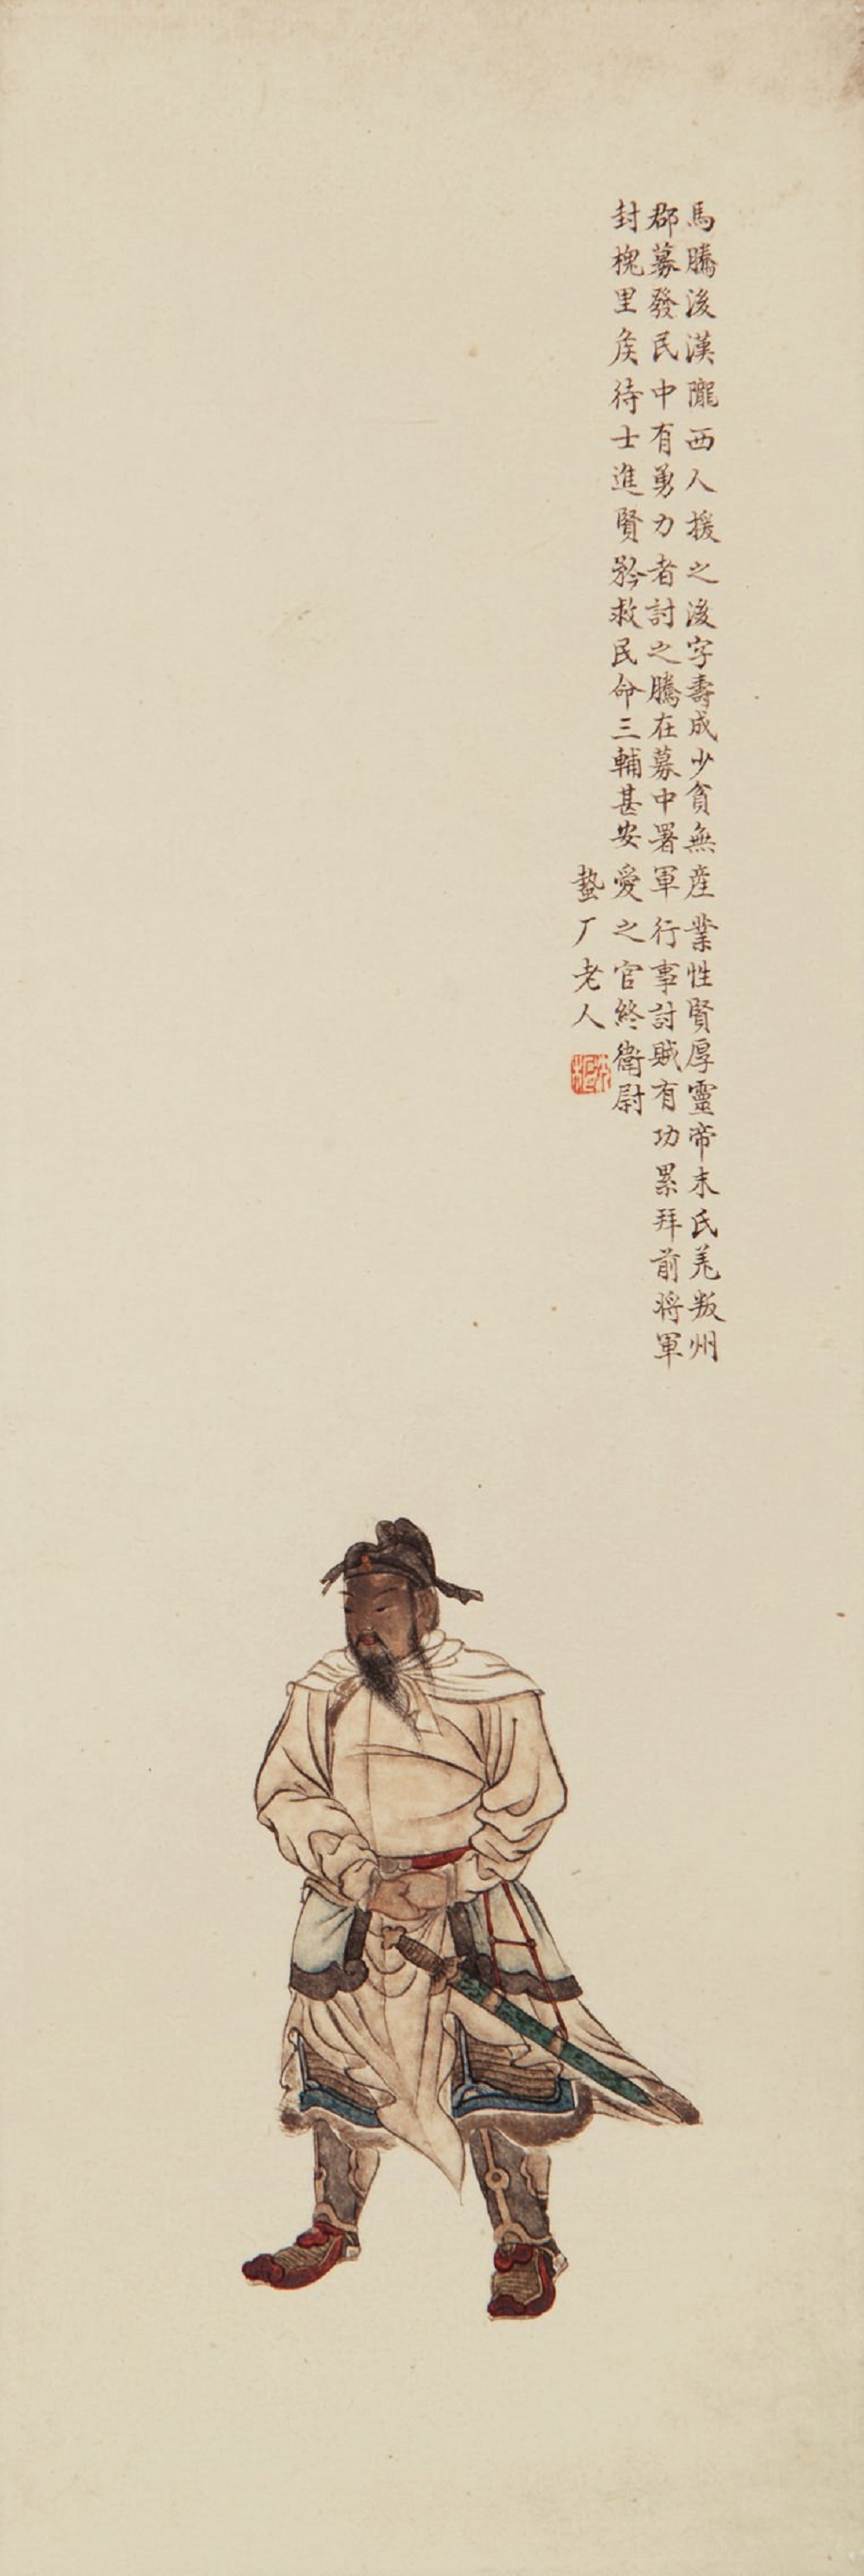 馬騰後漢隴西人援之後字壽成少貧無產業性賢厚靈帝末氐羌叛州
郡募發民中有勇力者討之騰在募中署軍行事討賊有功累拜前將軍
封槐里侯待士進賢矜救民命三輔甚安愛之官終衛尉
蟄厂老人